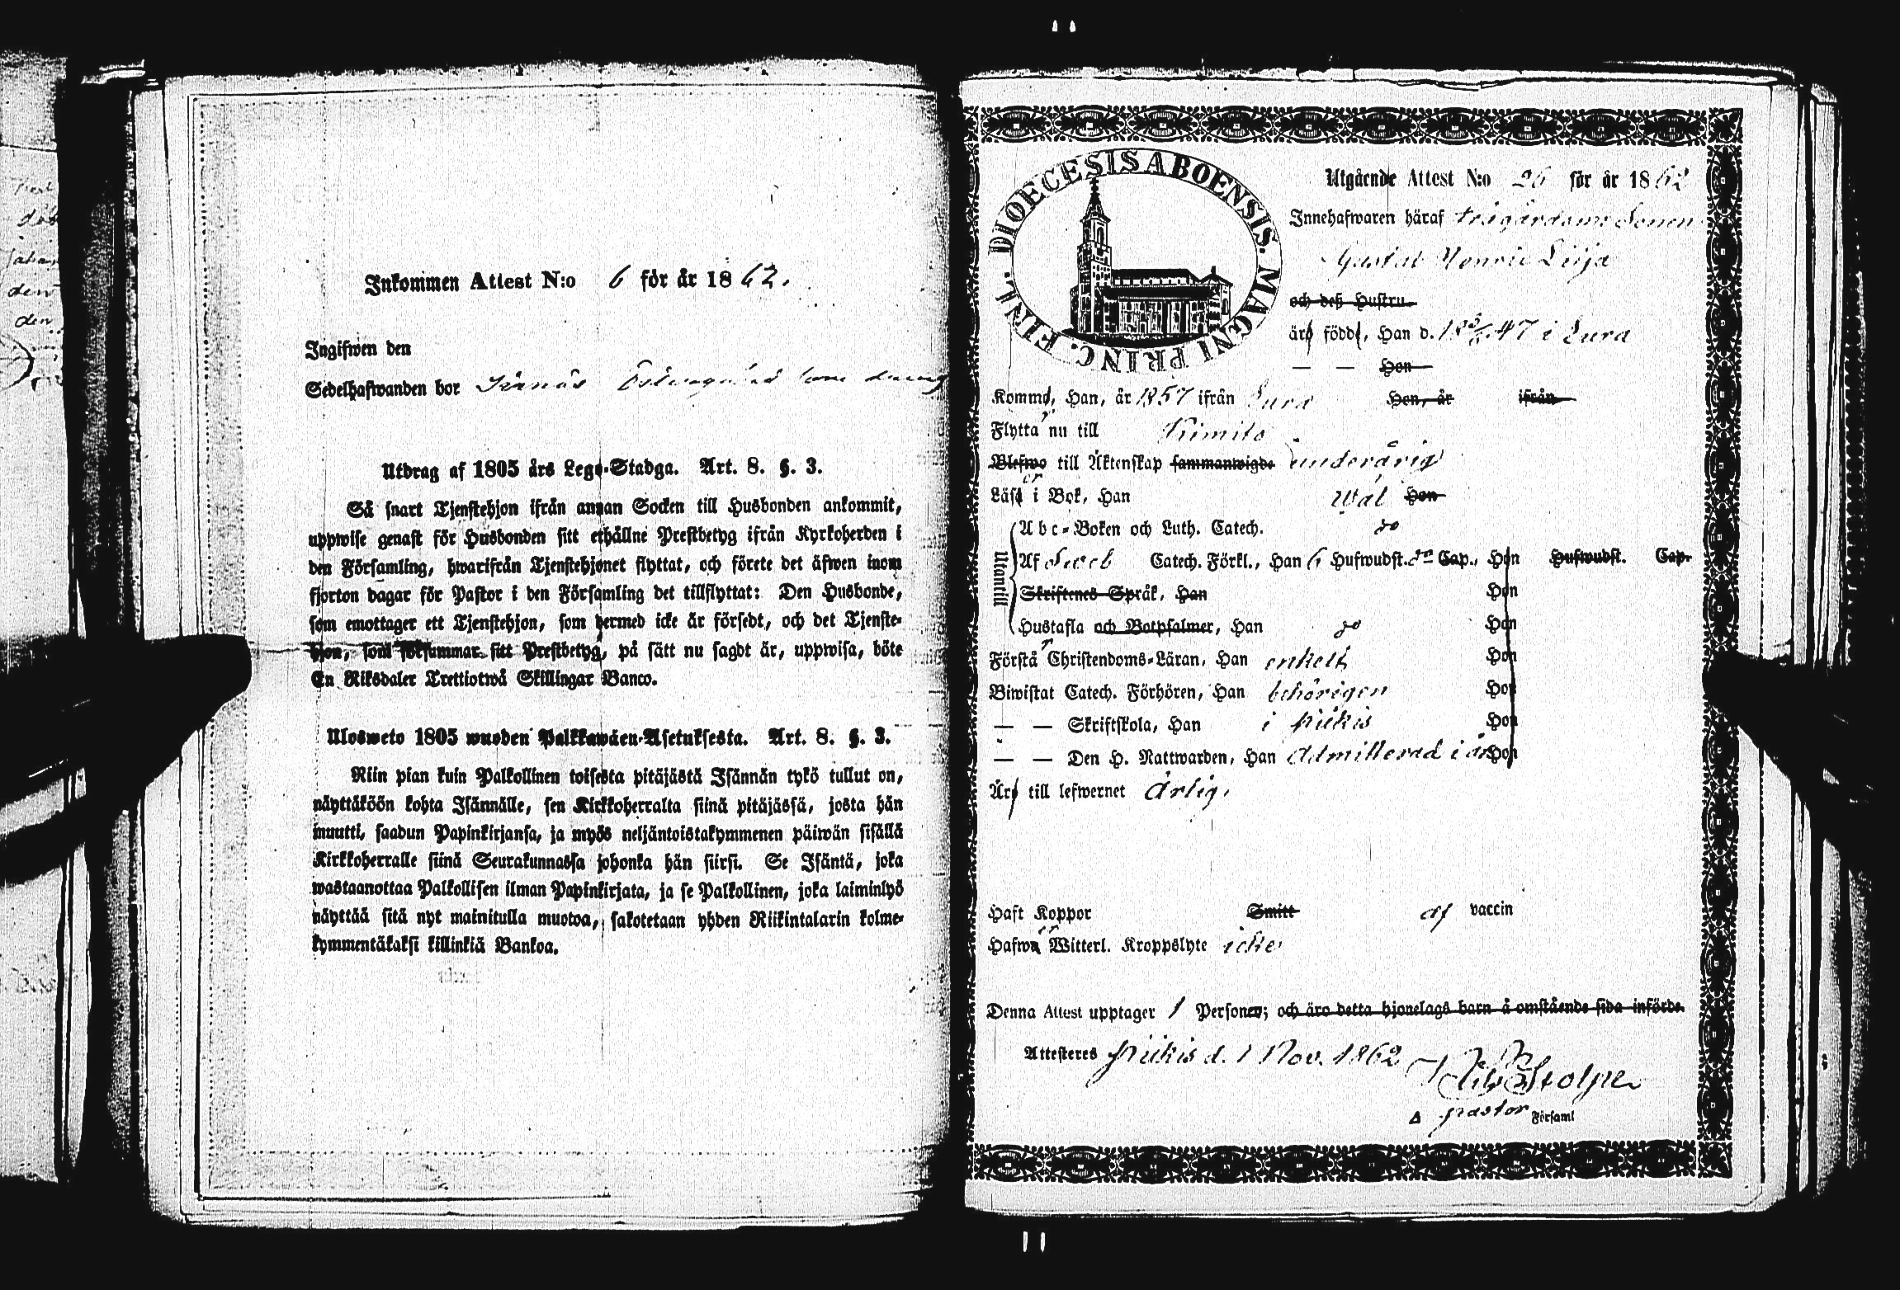 Inkommen Attest N:o 6 för år 1862.
Ingifwen den
Sedelhafwanden bor
Utdrag af 1805 års Lego-Stadga. Art. 8. §. 3.
Så snart Tjenstehjon ifrån annan Socken till Husbonden ankommit,
uppwise genast för Husbonden sitt erhållne Prestbetyg ifrån Kyrkoherden i
den Församling, hwarifrån Tjenstehjonet flyttat, och förete det äfwen inom
fjorton dagar för Pastor i den Församling det tillflyttat: Den Husbonde,
som emottager ett Tjenstehjon, som dermed icke är försedt, och det Tjenste-
hjon, som försummar sitt Prestbetyg, på sätt nu sagdt är, uppwisa, böte
En Riksdaler Trettiotwå Skillingar Banco.
Ulosweto 1805 wuoden Palkkawäen-Asetuksesta. Art. 8. §. 3.
Niin pian kuin Palkollinen toisesta pitäjästä Isännän tykö tullut on,
näyttäköön kohta Isännälle, sen Kirkkoherralta siinä pitäjässä, josta hän
muutti, saadun Papinkirjansa, ja myös neljäntoistakymmenen päiwän sisällä
Kirkkoherralle siinä Seurakunnassa johonka hän siirsi. Se Isäntä, joka
wastaanottaa Palkollisen ilman Papinkirjata, ja se Palkollinen, joka laiminlyö
näyttää sitä nyt mainitulla muotoa, sakotetaan yhden Riikintalarin kolme-
kymmentäkaksi killinkiä Bankoa.
DIOECESIS ABOENSIS. MAGNI PRINC. FINL.
Utgående Attest N:o 26 för år 1862
Innehafwaren häraf Trägårdsm: Sonen
Gustaf Henric Lilja
och deß Hustru
äro födde, Han d. 18 47 i Eura
— — Hon
Komme, Han, år 1857 ifrån Eura Hon, år ifrån
Flytta nu till Kimito
Blefwo till Äktenskap sammanwigde underårig
Läsa i Bok, Han wäl Hon
Utantill
Abc-Boken och Luth. Catech. do
Af Sweb Catech. Förkl., Han 6 Hufwudst. Cap., Hon Hufwudst. Cap.
Skriftenes Språk, Han Hon
Hustafla och Botpsalmer, Han do Hon
Förstå Christendoms-Läran, Han enkelt Hon
Biwistat Catech. Förhören, Han behörigen Hon
— — Skriftskola, Han i Piikis Hon
— — Den H. Nattwarden, Han admitterad i år Hon
Äro till lefwernet ärlig.
Haft Koppor Smitt af vaccin
Hafwa Witterl. Kroppslyte icke
Denna Attest upptager 1 Personer; och äro detta hjonelags barn å omstående sida införde.
Attesteres Piikis d. 1 Nov. 1862
Pastor Församl